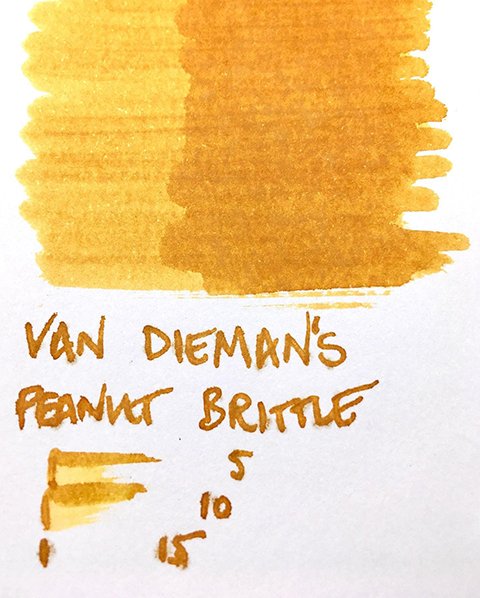 VAN DIEMAN'S
PEANUT BRITTLE
5
10
1 15